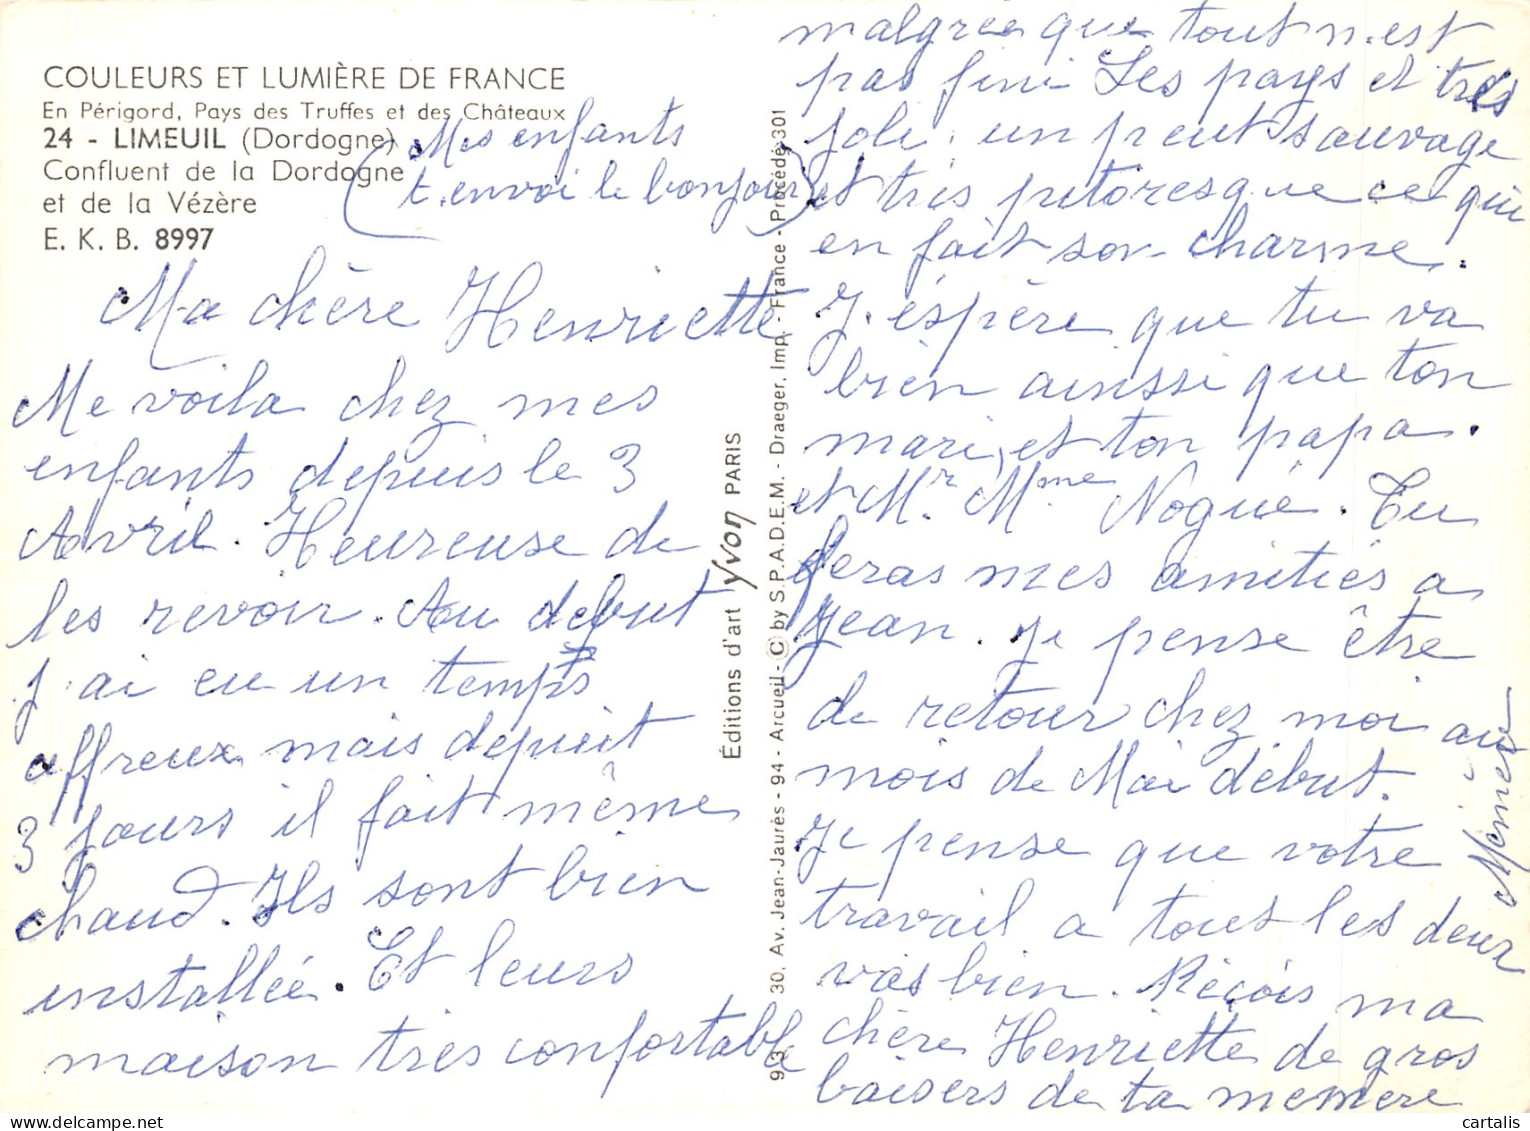 COULEURS ET LUMIÈRE DE FRANCE
En Périgord, Pays des Truffes et des Châteaux
24 - LIMEUIL (Dordogne)
Confluent de la Dordogne
et de la Vézère
E. K. B. 8997
(Mes enfants
t.envoi le bonjour)
Ma chère Henriette
Me voila chez mes
enfants depuis le 3
Avril. Heureuse de
les revoir. Au debut
j.ai eu un temps
affreux mais depuit
3 jours il fait même
chaud. Ils sont bien
installée. Et leurs
maison très confortable
Éditions d'art Yvon PARIS
93 30, Av. Jean-Jaurès - 94 - Arcueil - © by S.P.A.D.E.M. - Draeger, Imp. - France - Procédé 301
malgrée que tout n.est
pas fini Les pays et très
joli. un peut sauvage
et très pitoresque ce qui
en fait son charme.
J.éspère que tu va
bien ainssi que ton
mari, et ton papa.
et Mr. Mme Nogué. Tu
feras mes amitiés a
Jean. Je pense être
de retour chez moi au
mois de Mai début.
Je pense que votre
travail a tout les deux
vas bien. Reçois ma
chère Henriette de gros
baisers de ta memere
cartalis